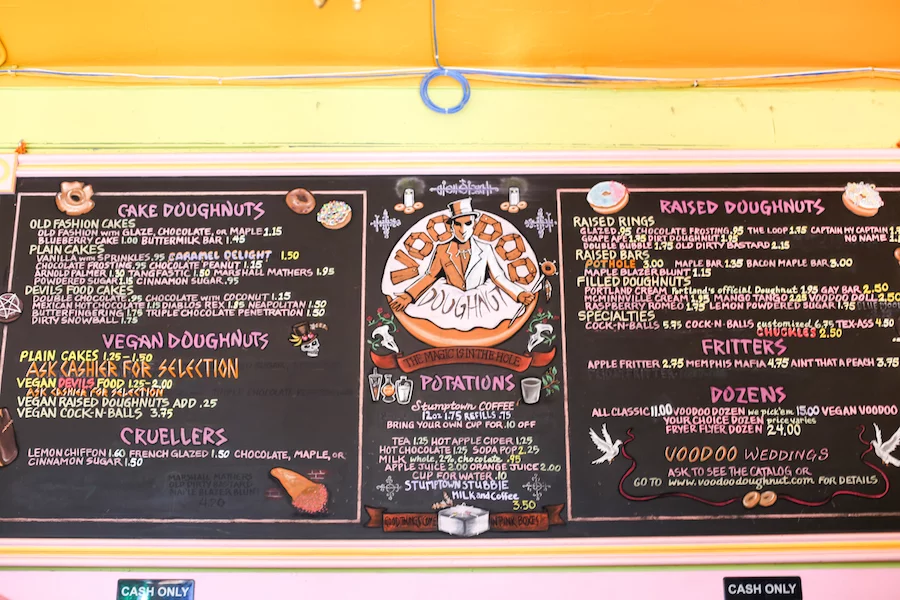 CAKE DOUGHNUTS
OLD FASHION CAKES
OLD FASHION with GLAZE, CHOCOLATE, OR MAPLE 1.15
BLUEBERRY CAKE 1.00 BUTTERMILK BAR 1.45
PLAIN CAKES
VANILLA with SPRINKLES .95 CARAMEL DELIGHT 1.50
CHOCOLATE FROSTING .95 CHOCOLATE PEANUT 1.15
ARNOLD PALMER 1.30 TANGFASTIC 1.50 MARSHALL MATHERS 1.95
POWDERED SUGAR 1.15 CINNAMON SUGAR .95
DEVILS FOOD CAKES
DOUBLE CHOCOLATE .95 CHOCOLATE with COCONUT 1.15
MEXICAN HOT CHOCOLATE 1.15 DIABLOS REX 1.95 NEAPOLITAN 1.50
BUTTERFINGERING 1.75 TRIPLE CHOCOLATE PENETRATION 1.50
DIRTY SNOWBALL 1.75
VEGAN DOUGHNUTS
PLAIN CAKES 1.25-1.50
ASK CASHIER FOR SELECTION
VEGAN DEVILS FOOD 1.25-2.00
ASK CASHIER FOR SELECTION
VEGAN RAISED DOUGHNUTS ADD .25
VEGAN COCK-N-BALLS 3.75
CRUELLERS
LEMON CHIFFON 1.60 FRENCH GLAZED 1.50 CHOCOLATE, MAPLE, OR
CINNAMON SUGAR 1.50
MARSHALL MATHERS
OLD DIRTY BASTARD
MAPLE BLAZER BLUNT
VOODOO
DOUGHNUT
THE MAGIC IS IN THE HOLE
POTATIONS
Stumptown COFFEE
12oz 1.75 REFILLS .75
BRING YOUR OWN CUP FOR .10 OFF
TEA 1.25 HOT APPLE CIDER 1.25
HOT CHOCOLATE 1.25 SODA POP 2.25
MILK whole, 2%, chocolate .95
APPLE JUICE 2.00 ORANGE JUICE 2.00
CUP FOR WATER .10
STUMPTOWN STUBBIE
MILK and COFFEE
3.50
GOOD THINGS COME IN PINK BOXES
RAISED DOUGHNUTS
RAISED RINGS
GLAZED .95 CHOCOLATE FROSTING .95 THE LOOP 1.95 CAPTAIN MY CAPTAIN
GRAPE APE 1.95 DIRT DOUGHNUT 1.95 NO NAME
DOUBLE BUBBLE 1.75 OLD DIRTY BASTARD 2.15
RAISED BARS
POTHOLE 3.00 MAPLE BAR 1.35 BACON MAPLE BAR 3.00
MAPLE BLAZER BLUNT 1.15
FILLED DOUGHNUTS
PORTLAND CREAM Portland's official Doughnut 1.95 GAY BAR 2.50
MCMINNVILLE CREAM 1.95 MANGO TANGO 2.25 VOODOO DOLL 2.50
RASPBERRY ROMEO 1.75 LEMON POWDERED SUGAR 1.75
SPECIALTIES
COCK-N-BALLS 5.75 COCK-N-BALLS customized 6.75 TEX-ASS 4.50
CHUCKLES 2.50
FRITTERS
APPLE FRITTER 2.75 MEMPHIS MAFIA 4.75 AINT THAT A PEACH 3.75
DOZENS
ALL CLASSIC 11.00 VOODOO DOZEN we pick'em 15.00 VEGAN VOODOO
YOUR CHOICE DOZEN price varies
FRYER FLYER DOZEN 24.00
VOODOO WEDDINGS
ASK TO SEE THE CATALOG OR
GO TO www.voodoodoughnut.com FOR DETAILS
CASH ONLY
CASH ONLY